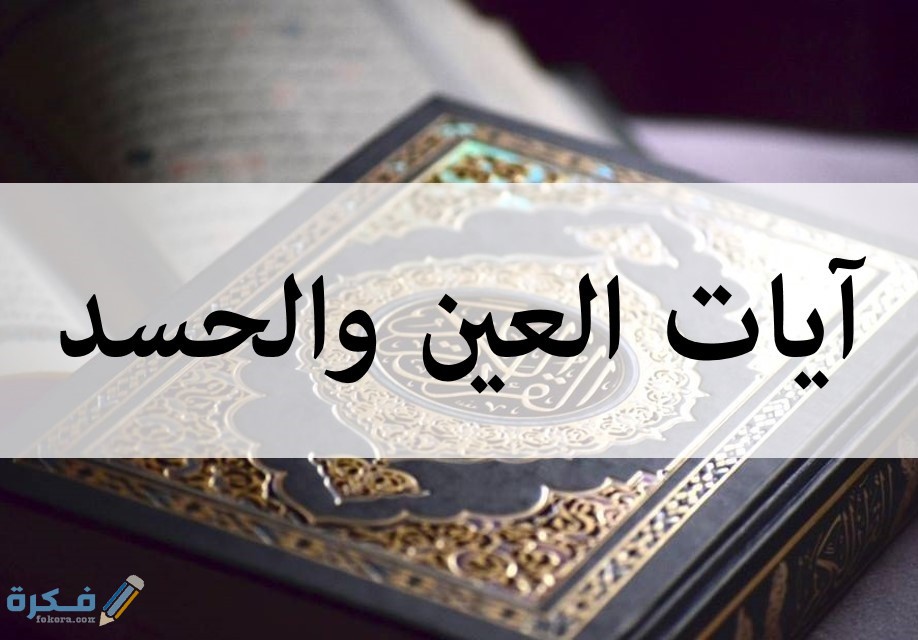 آيات العين والحسد
فكرة
fokora.com